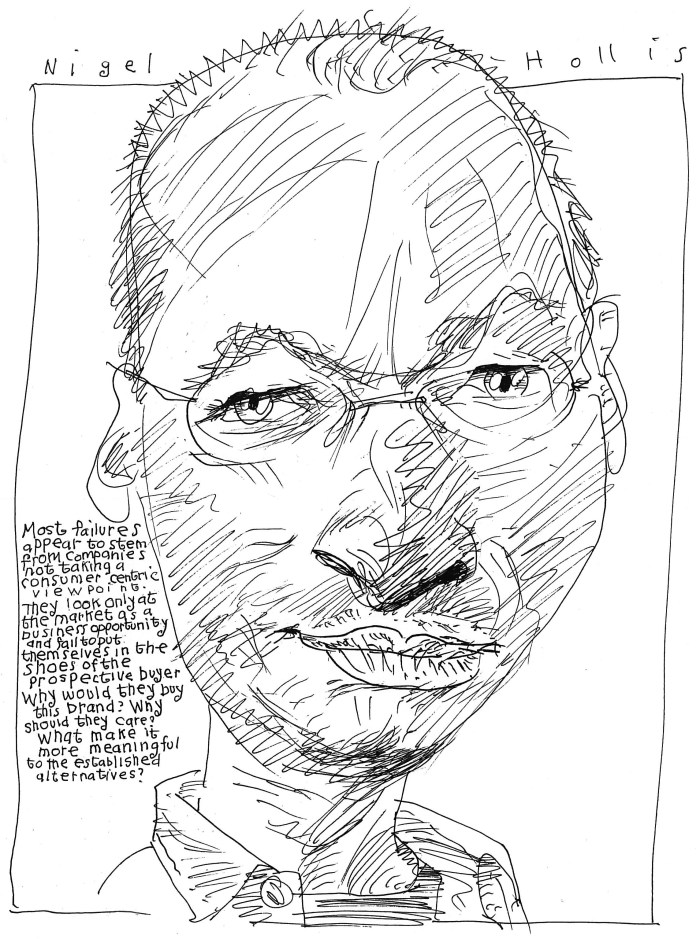 Nigel Hollis
Most failures
appear to stem
from companies
not taking a
consumer centric
viewpoint.
They look only at
the market as a
business opportunity
and fail to put
themselves in the
shoes of the
prospective buyer
Why would they buy
this brand? Why
should they care?
What make it
more meaningful
to the established
alternatives?